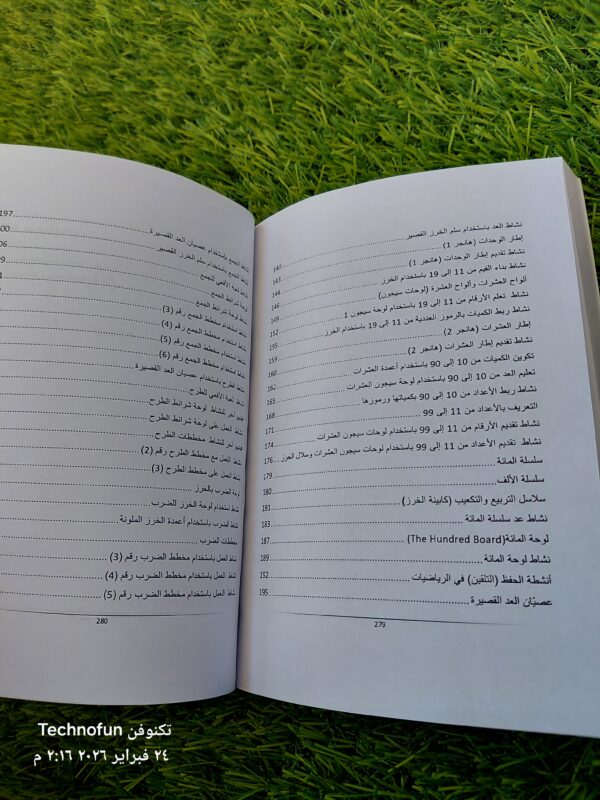 نشاط العد باستخدام سلم الخرز القصير
إطار الوحدات (هانجر 1) 140
نشاط تقديم إطار الوحدات (هانجر 1) 143
نشاط بناء القيم من 11 إلى 19 باستخدام الخرز 144
ألواح العشرات وألواح العشرة (لوحات سيجون) 146
نشاط تعلم الأرقام من 11 إلى 19 باستخدام لوحة سيجون 1 149
نشاط ربط الكميات بالرموز العددية من 11 إلى 19 باستخدام الخرز 152
إطار العشرات (هانجر 2) 155
نشاط تقديم إطار العشرات (هانجر 2) 159
تكوين الكميات من 10 إلى 90 باستخدام أعمدة العشرات
تعليم العد من 10 إلى 90 باستخدام لوحة سيجون العشرات
نشاط ربط الأعداد من 10 إلى 90 بكمياتها ورموزها 165
التعريف بالأعداد من 11 إلى 99 168
نشاط تقديم الأرقام من 11 إلى 99 باستخدام لوحات سيجون العشرات 171
نشاط تقديم الأعداد من 11 إلى 99 باستخدام لوحات سيجون العشرات وسلال الخرز 174
سلسلة المائة 176
سلسلة الألف 179
سلاسل التربيع والتكعيب (كابينة الخرز) 180
نشاط عد سلسلة المائة 181
لوحة المائة (The Hundred Board) 187
نشاط لوحة المائة 189
أنشطة الحفظ (التلقين) في الرياضيات 192
عصيّان العد القصيرة 195
279
نشاط الجمع باستخدام عصيان العد القصيرة 197
نشاط الجمع باستخدام سلم الخرز القصير
نشاط لعبة الأفعى للجمع
لوحة شرائط الجمع
نشاط لوحة شرائط الجمع
نشاط استخدام مخطط الجمع رقم (3)
نشاط استخدام مخطط الجمع رقم (4)
نشاط استخدام مخطط الجمع رقم (5)
نشاط استخدام مخطط الجمع رقم (6)
نشاط الطرح باستخدام عصيان العد القصيرة
نشاط لعبة الأفعى للطرح
لنشاط لوحة شرائط الطرح
العمل على لوحة شرائط الطرح
لنشاط مخططات الطرح
العمل مع مخطط الطرح رقم (2)
العمل على مخطط الطرح (3)
الضرب بالخرز
استخدام لوحة الخرز للضرب
الضرب باستخدام أعمدة الخرز الملونة
مخططات الضرب
العمل باستخدام مخطط الضرب رقم (3)
العمل باستخدام مخطط الضرب رقم (4)
العمل باستخدام مخطط الضرب رقم (5)
280
تكنوفن Technofun
٢٤ فبراير ٢٠٢٦ ٢:١٦ م